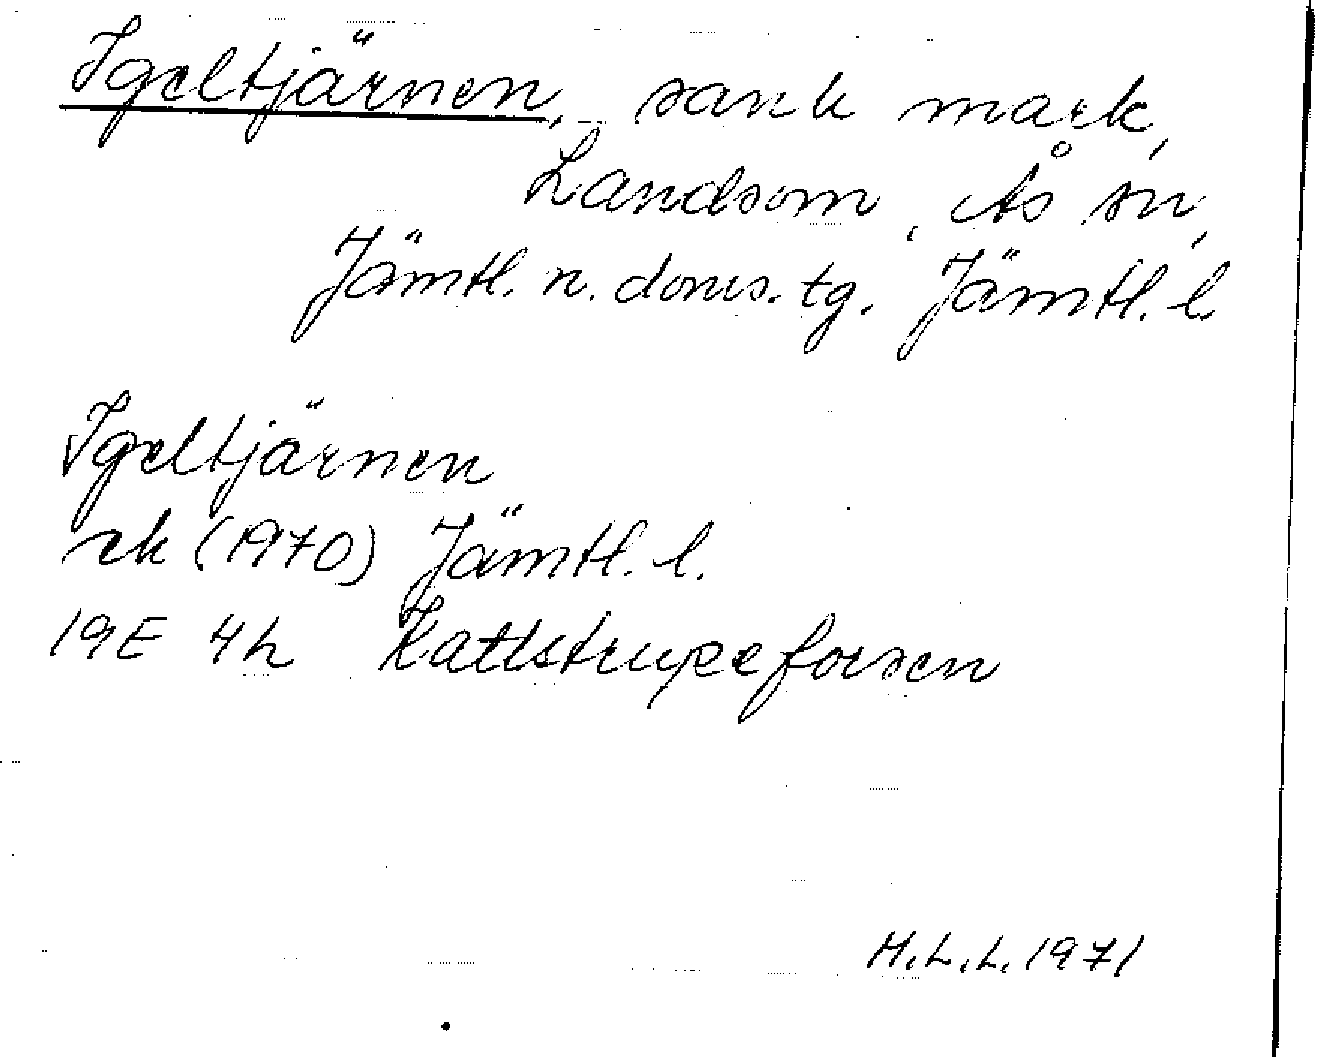 Igeltjärnen, sank mark,
Landsom, Ås sn,
Jämtl. n. doms. tg. Jämtl. l.
Igeltjärnen
rk (1970) Jämtl. l.
19E 4h Kattstrupeforsen
H.L.L. 1971